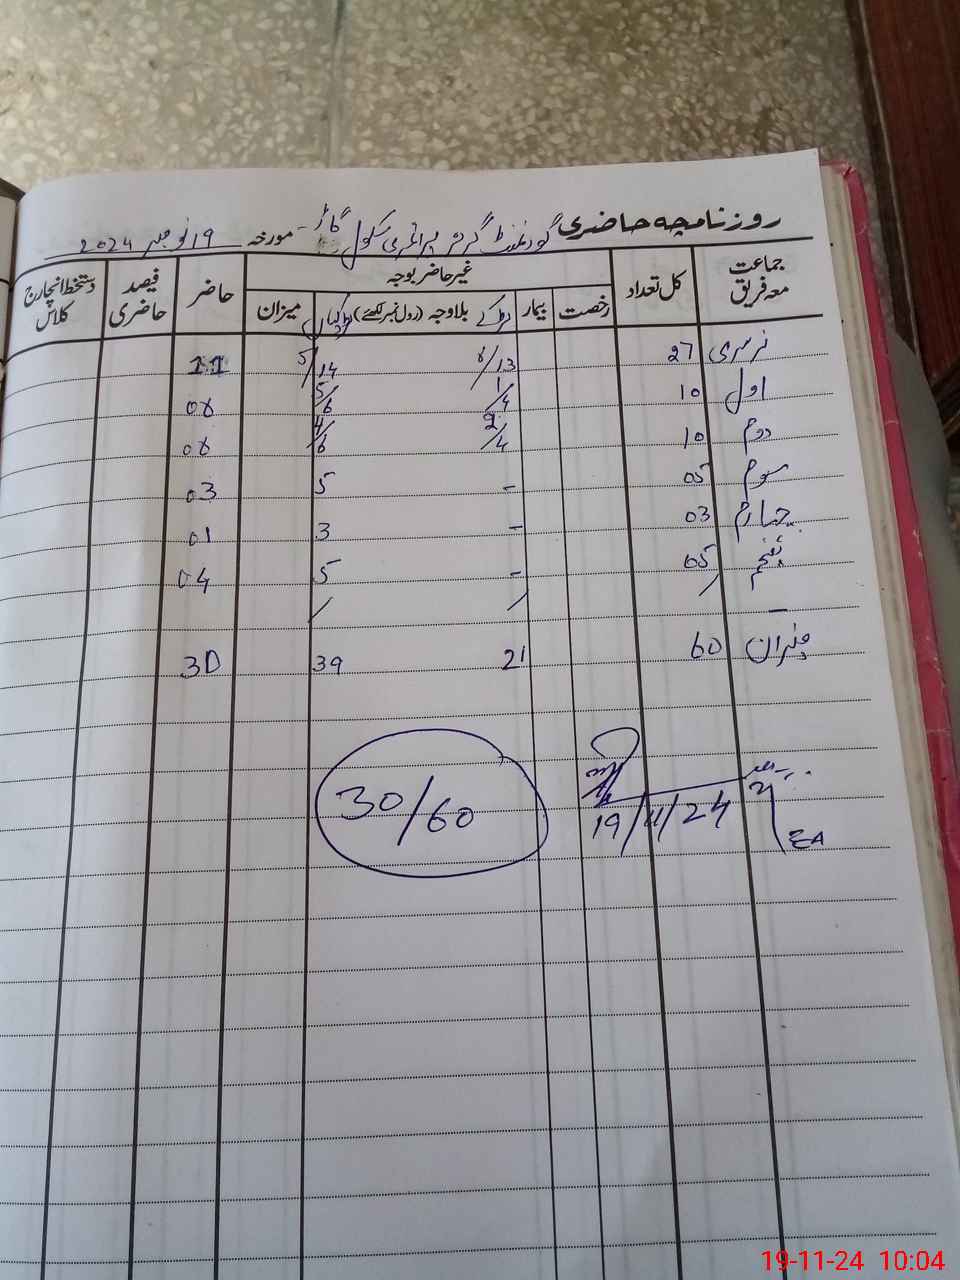 روزنامچہ حاضری گورنمنٹ گرلز پرائمری سکول گاڑ - مورخہ ۱۹ نومبر 2024
جماعت معہ فریق کل تعداد غیر حاضر بوجہ حاضر فیصد حاضری دستخط انچارج کلاس
رخصت بیمار لڑکے بلاوجہ (رول نمبر لکھئے) لڑکیاں میزان
نرسری 27 8/13 5/14 11
اول 10 1/4 5/6 08
دوم 10 2/4 4/6 08
سوم 05 - 5 03
چہارم 03 - 3 01
پنجم 05 - 5 04
— / / /
میزان 60 21 39 30
30/60
19/11/24
19-11-24 10:04